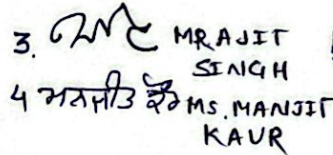 3. MR AJIT
SINGH
4 ਮਨਜੀਤ ਕੌਰ MS. MANJIT
KAUR